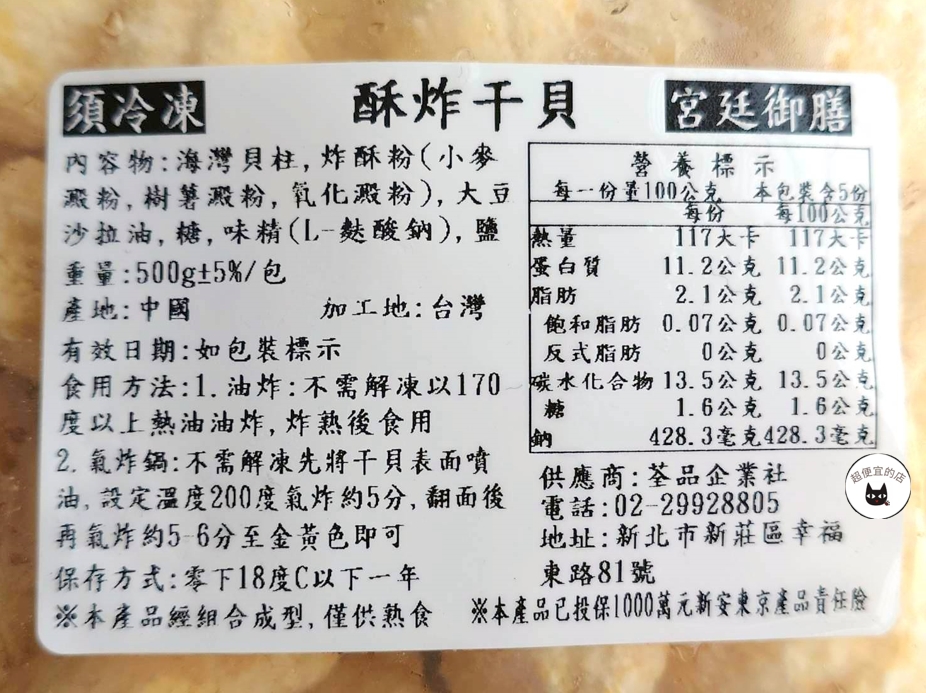 須冷凍 酥炸干貝 宮廷御膳
內容物:海灣貝柱,炸酥粉(小麥
澱粉,樹薯澱粉,氧化澱粉),大豆
沙拉油,糖,味精(L-麩酸鈉),鹽
重量:500g±5%/包
產地:中國 加工地:台灣
有效日期:如包裝標示
食用方法:1.油炸:不需解凍以170
度以上熱油油炸,炸熟後食用
2.氣炸鍋:不需解凍先將干貝表面噴
油,設定溫度200度氣炸約5分,翻面後
再氣炸約5-6分至金黃色即可
保存方式:零下18度C以下一年
※本產品經組合成型,僅供熟食
營養標示
每一份量100公克 本包裝含5份
每份 每100公克
熱量 117大卡 117大卡
蛋白質 11.2公克 11.2公克
脂肪 2.1公克 2.1公克
飽和脂肪 0.07公克 0.07公克
反式脂肪 0公克 0公克
碳水化合物 13.5公克 13.5公克
糖 1.6公克 1.6公克
鈉 428.3毫克 428.3毫克
供應商:荃品企業社
電話:02-29928805
地址:新北市新莊區幸福
東路81號
※本產品已投保1000萬元新安東京產品責任險
超便宜的店